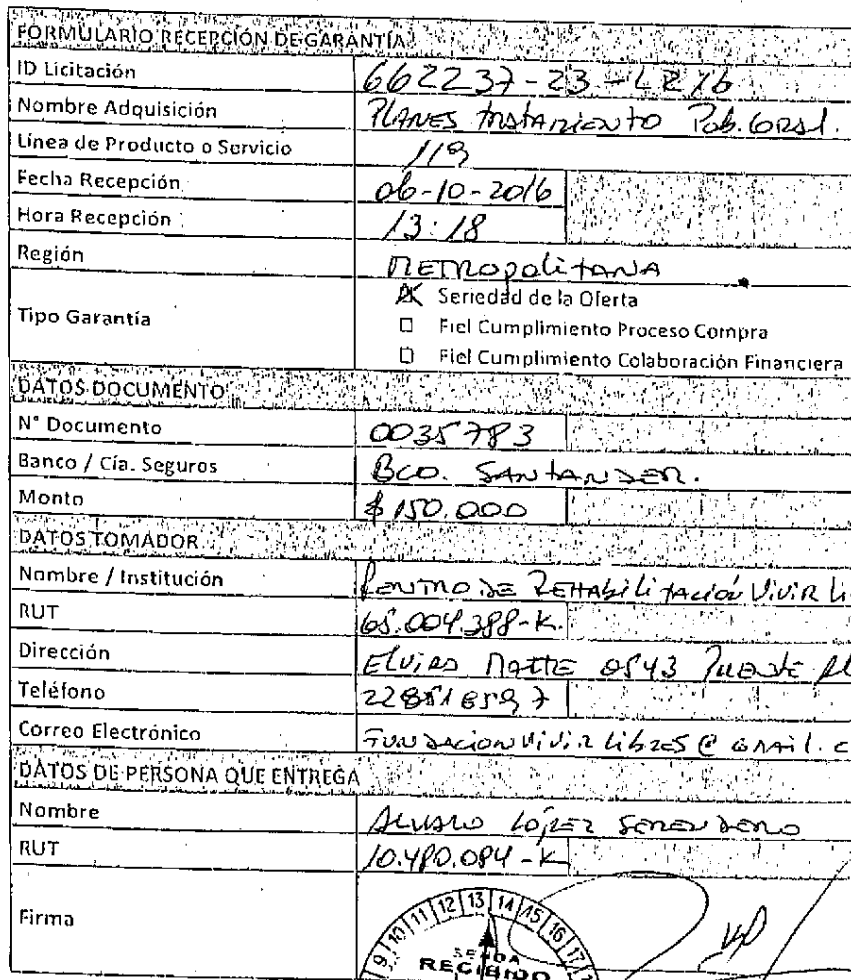 FORMULARIO RECEPCIÓN DE GARANTÍA
ID Licitación 662237-23-LR16
Nombre Adquisición Planes tratamiento Pob. Gral.
Línea de Producto o Servicio 119
Fecha Recepción 06-10-2016
Hora Recepción 13:18
Región Metropolitana
Tipo Garantía
Seriedad de la Oferta
Fiel Cumplimiento Proceso Compra
Fiel Cumplimiento Colaboración Financiera
DATOS DOCUMENTO
N° Documento 0035783
Banco / Cía. Seguros Bco. Santander.
Monto $150.000
DATOS TOMADOR
Nombre / Institución Centro de Rehabilitación Vivir Li
RUT 65.004.388-K.
Dirección Elvira Matte 0543 Puente Al
Teléfono
Correo Electrónico Fundacionvivirlibres@gmail.c
DATOS DE PERSONA QUE ENTREGA
Nombre Alvaro López Serendero
RUT 10.480.084-K
Firma
9 10 11 12 13 14 15 16 17
SENDA
RECIBIDO